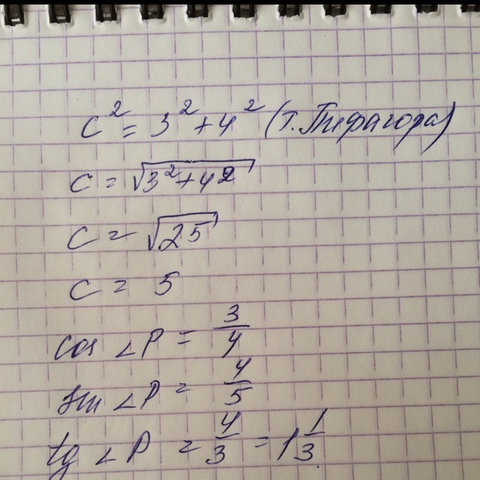 c² = 3² + 4² (т. Пифагора)
c = √(3² + 4²)
c = √25
c = 5
cos ∠P = 3/4
sin ∠P = 4/5
tg ∠P = 4/3 = 1 1/3